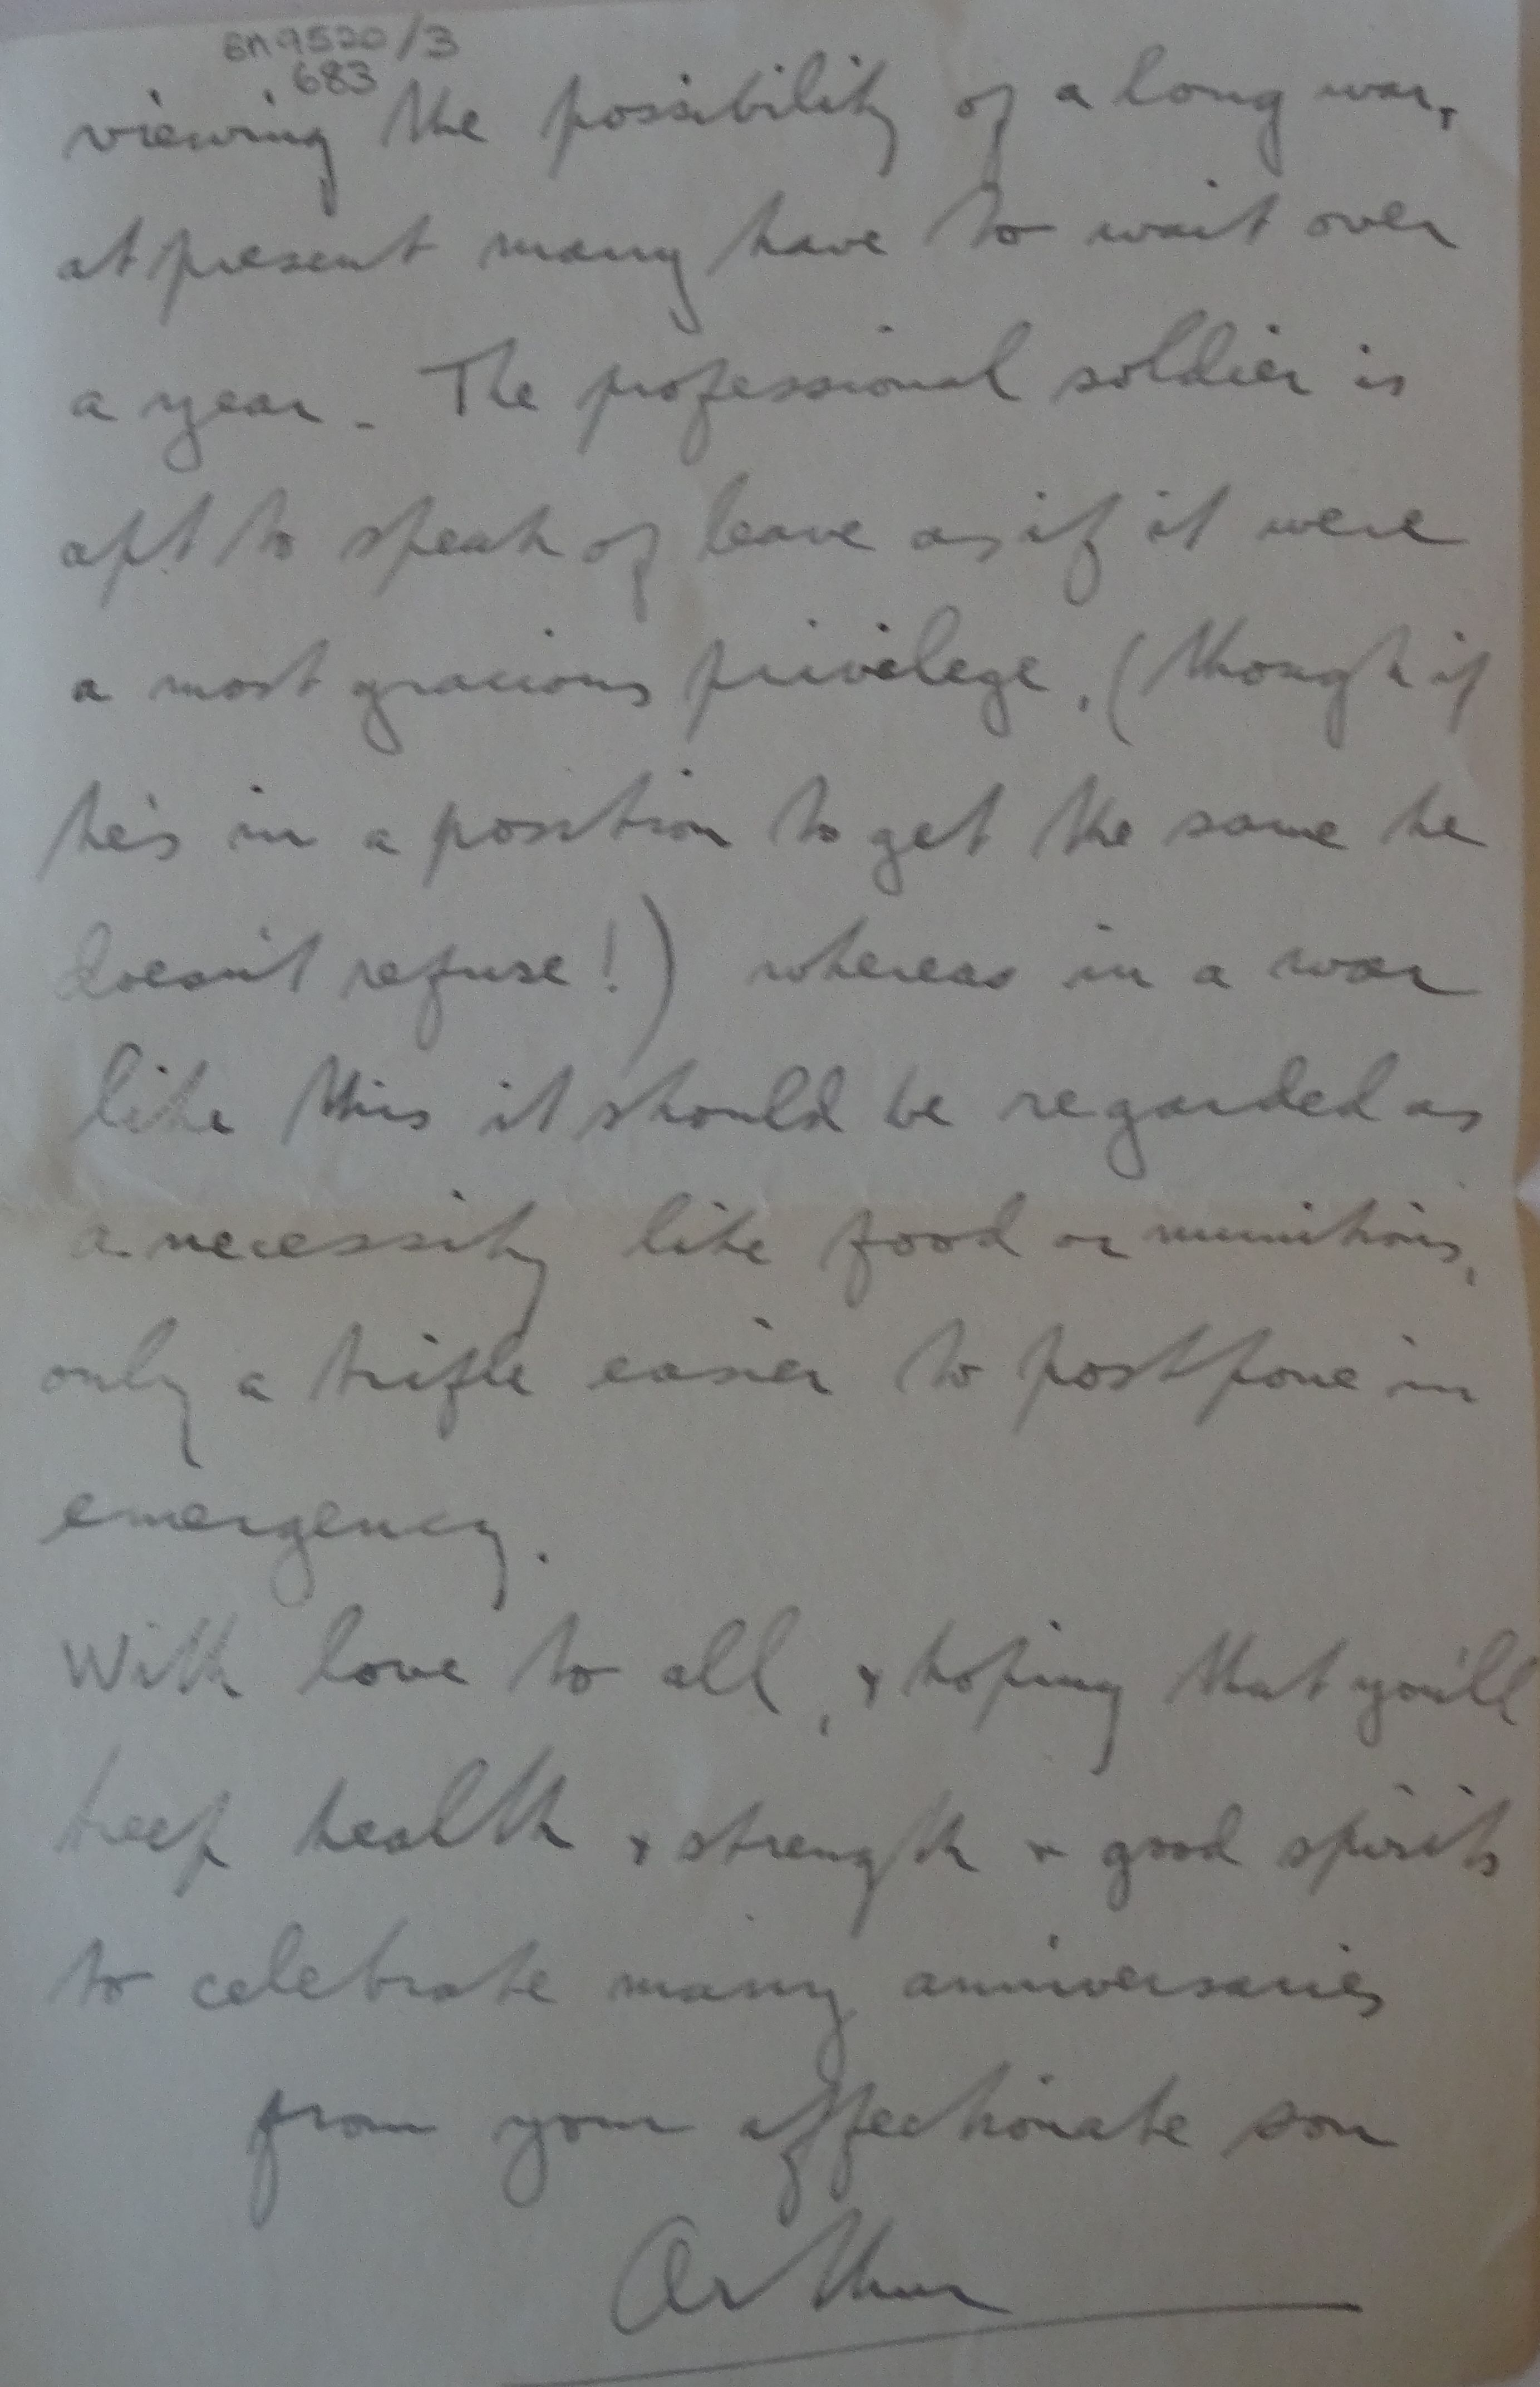 6n9520/3
683
viewing the possibility of a long war,
at present many have to wait over
a year. The professional soldier is
apt to speak of leave as if it were
a most gracious privilege, (though if
he's in a position to get the same he
doesn't refuse!) whereas in a war
like this it should be regarded as
a necessity like food or munitions,
only a trifle easier to postpone in
emergency.
With love to all, & hoping that you'll
keep health & strength & good spirits
to celebrate many anniversaries
from your affectionate son
Arthur